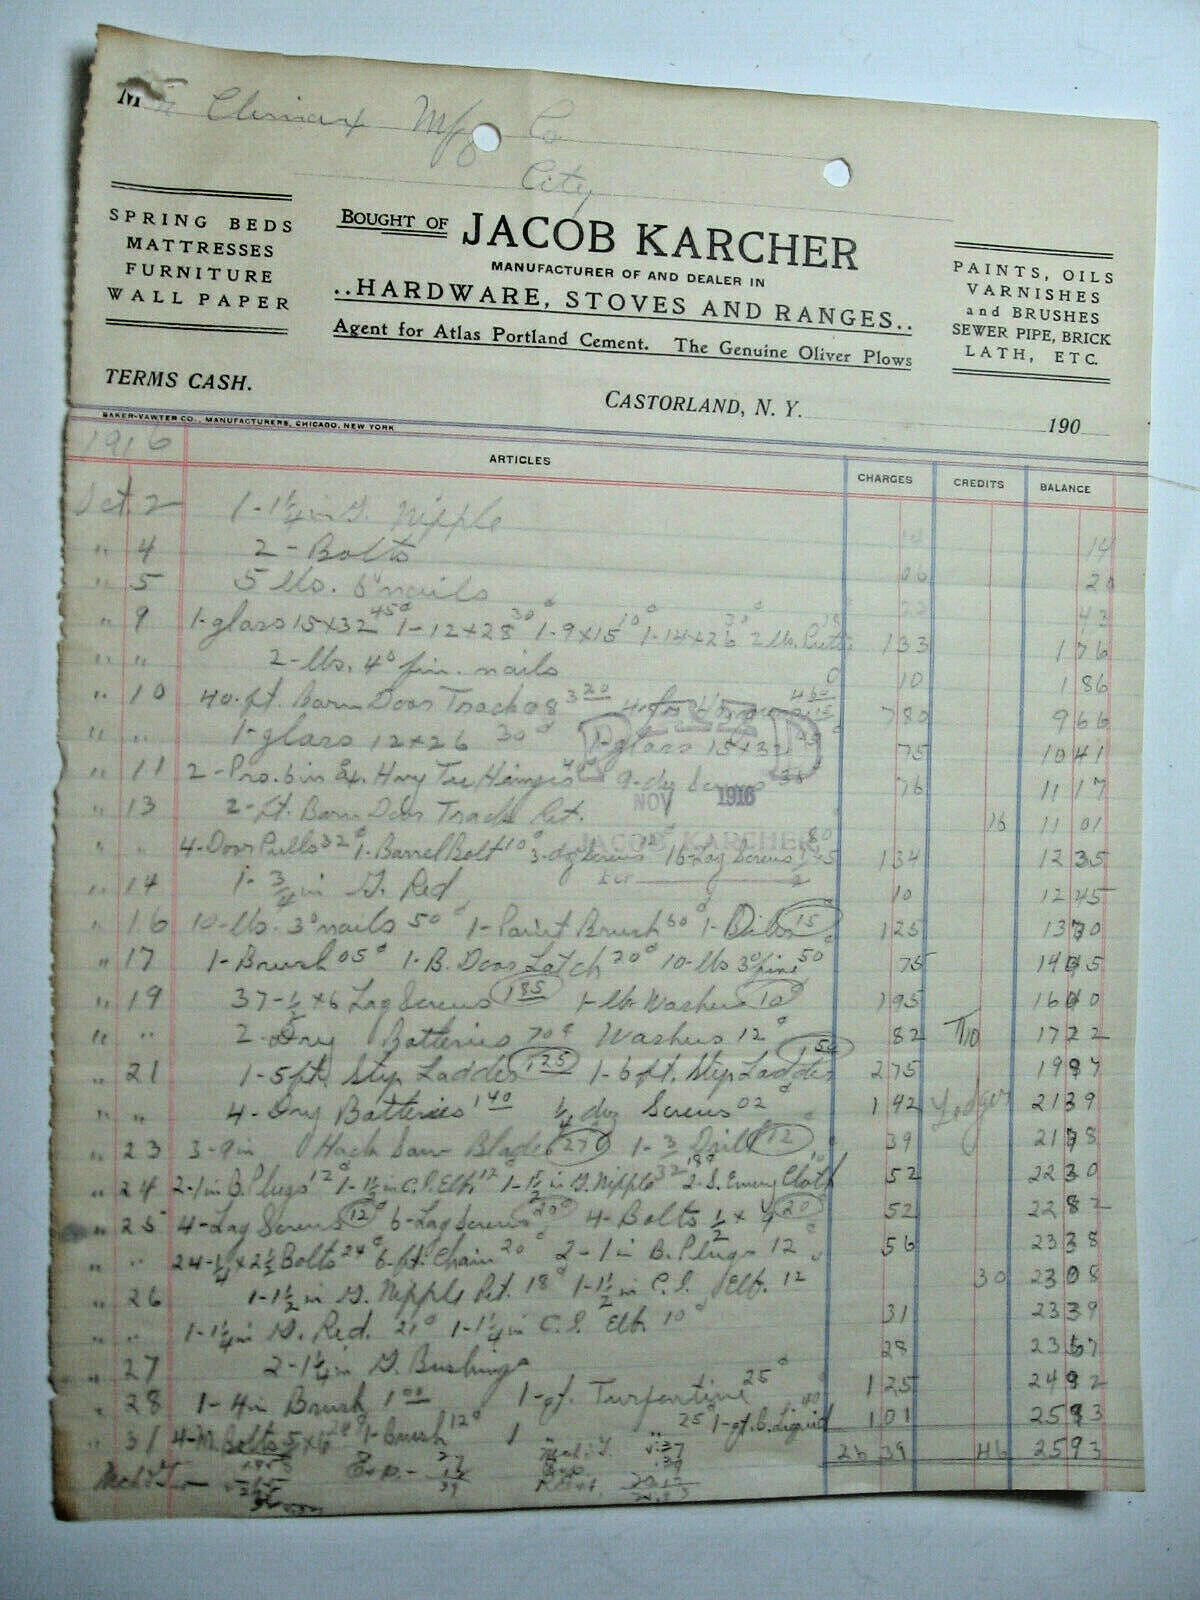 M Climax Mfg Co
City
SPRING BEDS
MATTRESSES
FURNITURE
WALL PAPER
BOUGHT OF JACOB KARCHER
MANUFACTURER OF AND DEALER IN
..HARDWARE, STOVES AND RANGES..
Agent for Atlas Portland Cement. The Genuine Oliver Plows
PAINTS, OILS
VARNISHES
and BRUSHES
SEWER PIPE, BRICK
LATH, ETC.
TERMS CASH.
CASTORLAND, N. Y. 190
BAKER-VAWTER CO., MANUFACTURERS, CHICAGO, NEW YORK
1916
ARTICLES CHARGES CREDITS BALANCE
Oct. 2 1-1¼ in G. Nipple 14 14
" 4 2-Bolts 06 20
" 5 5 lbs. 6d nails 43
" 9 1-glass 15x32 45c 1-12x28 30c 1-9x15 10c 1-14x26 30c 2 lbs. Putty 133 176
" " 2-lbs. 4d fin. nails 10 186
" 10 40-ft. Barn Door Track 08 320 780 966
" " 1-glass 12x26 30c 1-glass 15x32 75 1041
" 11 2-Prs. 6 in Ex. Hvy Tee Hinges 9-dz Screws 76 1117
" 13 2-ft. Barn Door Track Ret. 16 1101
" " 4-Door Pulls 32c 1-Barrel Bolt 10c 3-dz Screws 16-Lag Screws 80 134 1235
" 14 1-¾ in G. Red 10 1245
" 16 10-lbs. 3d nails 50c 1-Paint Brush 60c 1- 15 125 1370
" 17 1-Brush 05c 1-B. Door Latch 20c 10-lbs 3d fine 50 75 1445
" 19 37-½x6 Lag Screws 185 1-lb. Washers 10c 195 1640
" " 2-Dry Batteries 70c Washers 12c 82 1722
" 21 1-5 ft. Step Ladder 125 1-6 ft. Step Ladder 150 275 1997
" " 4-Dry Batteries 140 ¼ doz Screws 02c 142 Ledger 2139
" 23 3-9 in Hack Saw Blades 27c 1- Drill 12 39 2178
" 24 2-1 in B. Plugs 12c 1-1½ in C.I. Elb. 12 1-1½ in G. Nipple 2-S. Emery Cloth 52 2230
" 25 4-Lag Screws 12c 6-Lag Screws 20c 4-Bolts ½x9 20 52 2282
" " 24-¼x2½ Bolts 24c 6-ft. Chain 20c 2-1 in B. Plugs 12c 56 2338
" 26 1-1½ in G. Nipple Ret. 18c 1-1½ in C.I. Elb. 12 30 2308
" " 1-1¼ in G. Red. 21c 1-1¼ in C.I. Elb 10c 31 2339
" 27 2-1¼ in G. Bushings 28 2367
" 28 1-4 in Brush 100 1-qt. Turpentine 25c 125 2492
" 31 4-M. Bolts 5x6 1-Brush 12c 1 " " 25c 1-qt. C. Liquid 101 2593
26 39 46 2593
Exp.-
PAID
NOV 1916
JACOB KARCHER